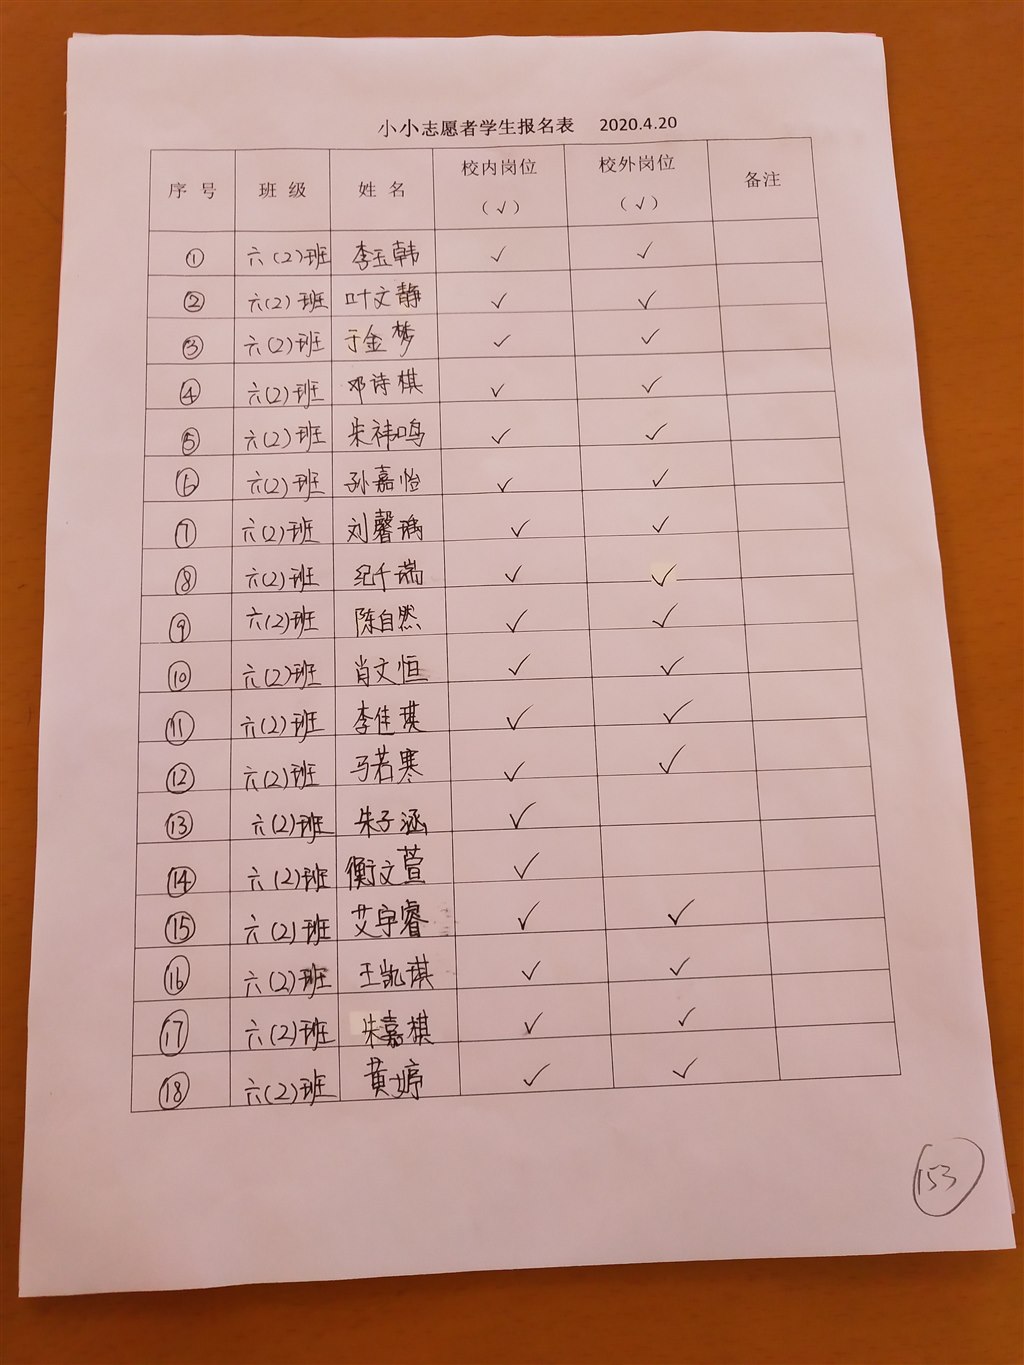 小小志愿者学生报名表 2020.4.20
序号 班级 姓名 校内岗位（√） 校外岗位（√） 备注
① 六(2)班 李玉韩 ✓ ✓
② 六(2)班 叶文静 ✓ ✓
③ 六(2)班 于金梦 ✓ ✓
④ 六(2)班 邓诗棋 ✓ ✓
⑤ 六(2)班 朱祎鸣 ✓ ✓
⑥ 六(2)班 孙嘉怡 ✓ ✓
⑦ 六(2)班 刘馨瑀 ✓ ✓
⑧ 六(2)班 纪千瑞 ✓ ✓
⑨ 六(2)班 陈自然 ✓ ✓
⑩ 六(2)班 肖文恒 ✓ ✓
⑪ 六(2)班 李佳琪 ✓ ✓
⑫ 六(2)班 马若寒 ✓ ✓
⑬ 六(2)班 朱子涵 ✓
⑭ 六(2)班 衡文萱 ✓
⑮ 六(2)班 艾宇睿 ✓ ✓
⑯ 六(2)班 王凯琪 ✓ ✓
⑰ 六(2)班 朱嘉棋 ✓ ✓
⑱ 六(2)班 黄婷 ✓ ✓
153